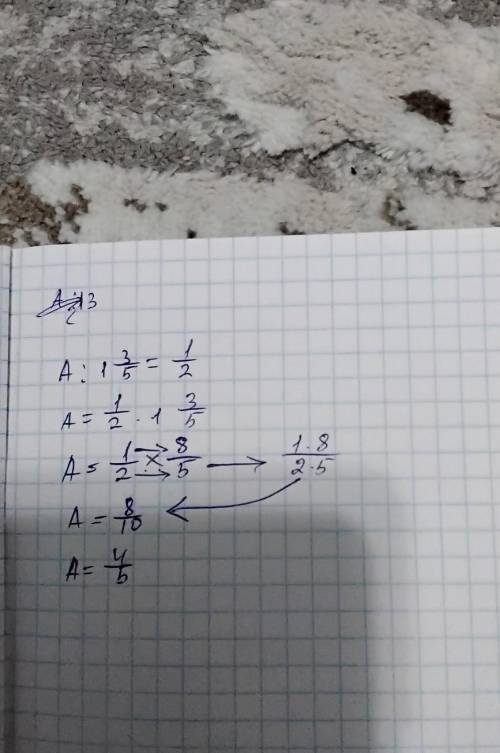 A : 1 3/5 = 1/2
A = 1/2 · 1 3/5
A = 1/2 × 8/5 → 1·8/2·5
A = 8/10
A = 4/5